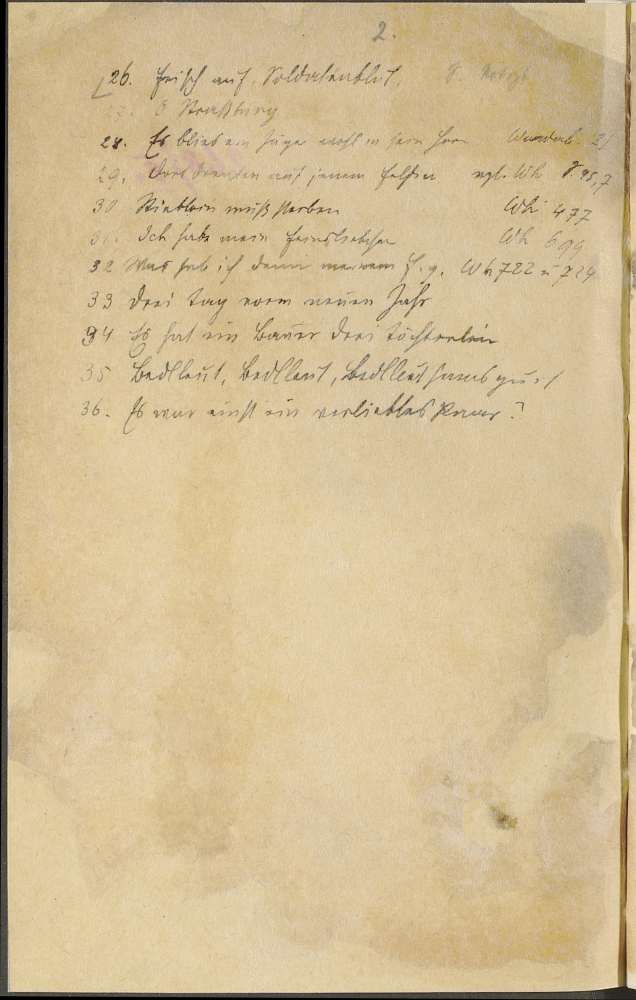 2.
26. Frisch auf, Soldatenblut,
27. O Straßburg
28. Es blies ein Jäger wohl in sein Horn Wunderh.
29. Dort droben auf jenem Felsen vgl. Wh
30 Stieblein muß sterben Wh 477
31. Ich habe mein Feinsliebchen Wh 699
32 Was hab ich denn meinem F. g. Wh 722 u 724
33 Drei Tag vorm neuen Jahr
34 Es hat ein Bauer drei Töchterlein
35 Bedlleut, Bedlleut, Bedlleut
36. Es war einst ein verliebtes Paar?